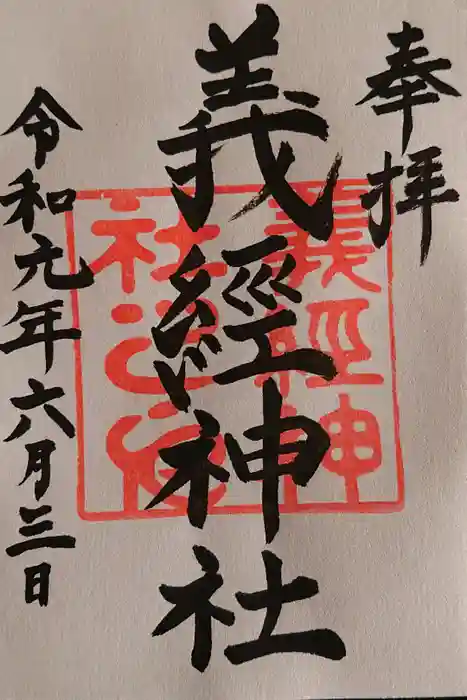 奉拝
義經神社
令和元年六月三日
義経神
社之印